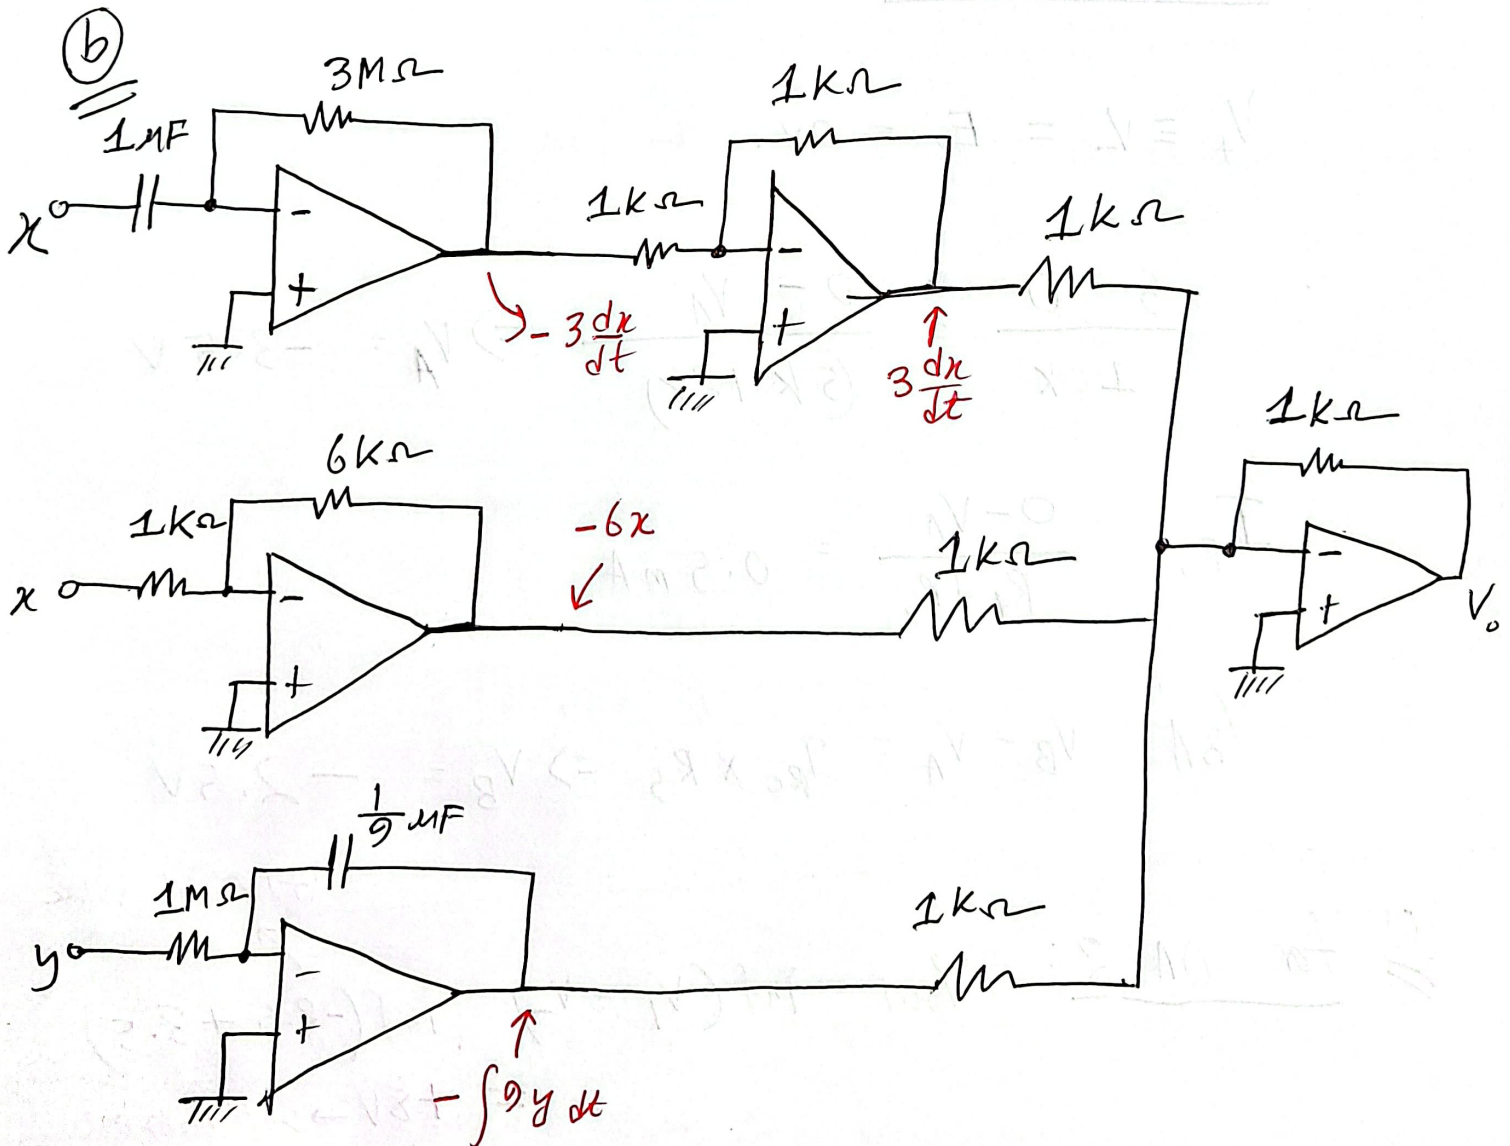 b
3MΩ
1μF
x
-
+
-3 dx/dt
1kΩ
1kΩ
-
+
3 dx/dt
1kΩ
6kΩ
1kΩ
x
-
+
-6x
1kΩ
1kΩ
-
+
V₀
1/9 μF
1MΩ
y
-
+
-∫9y dt
1kΩ